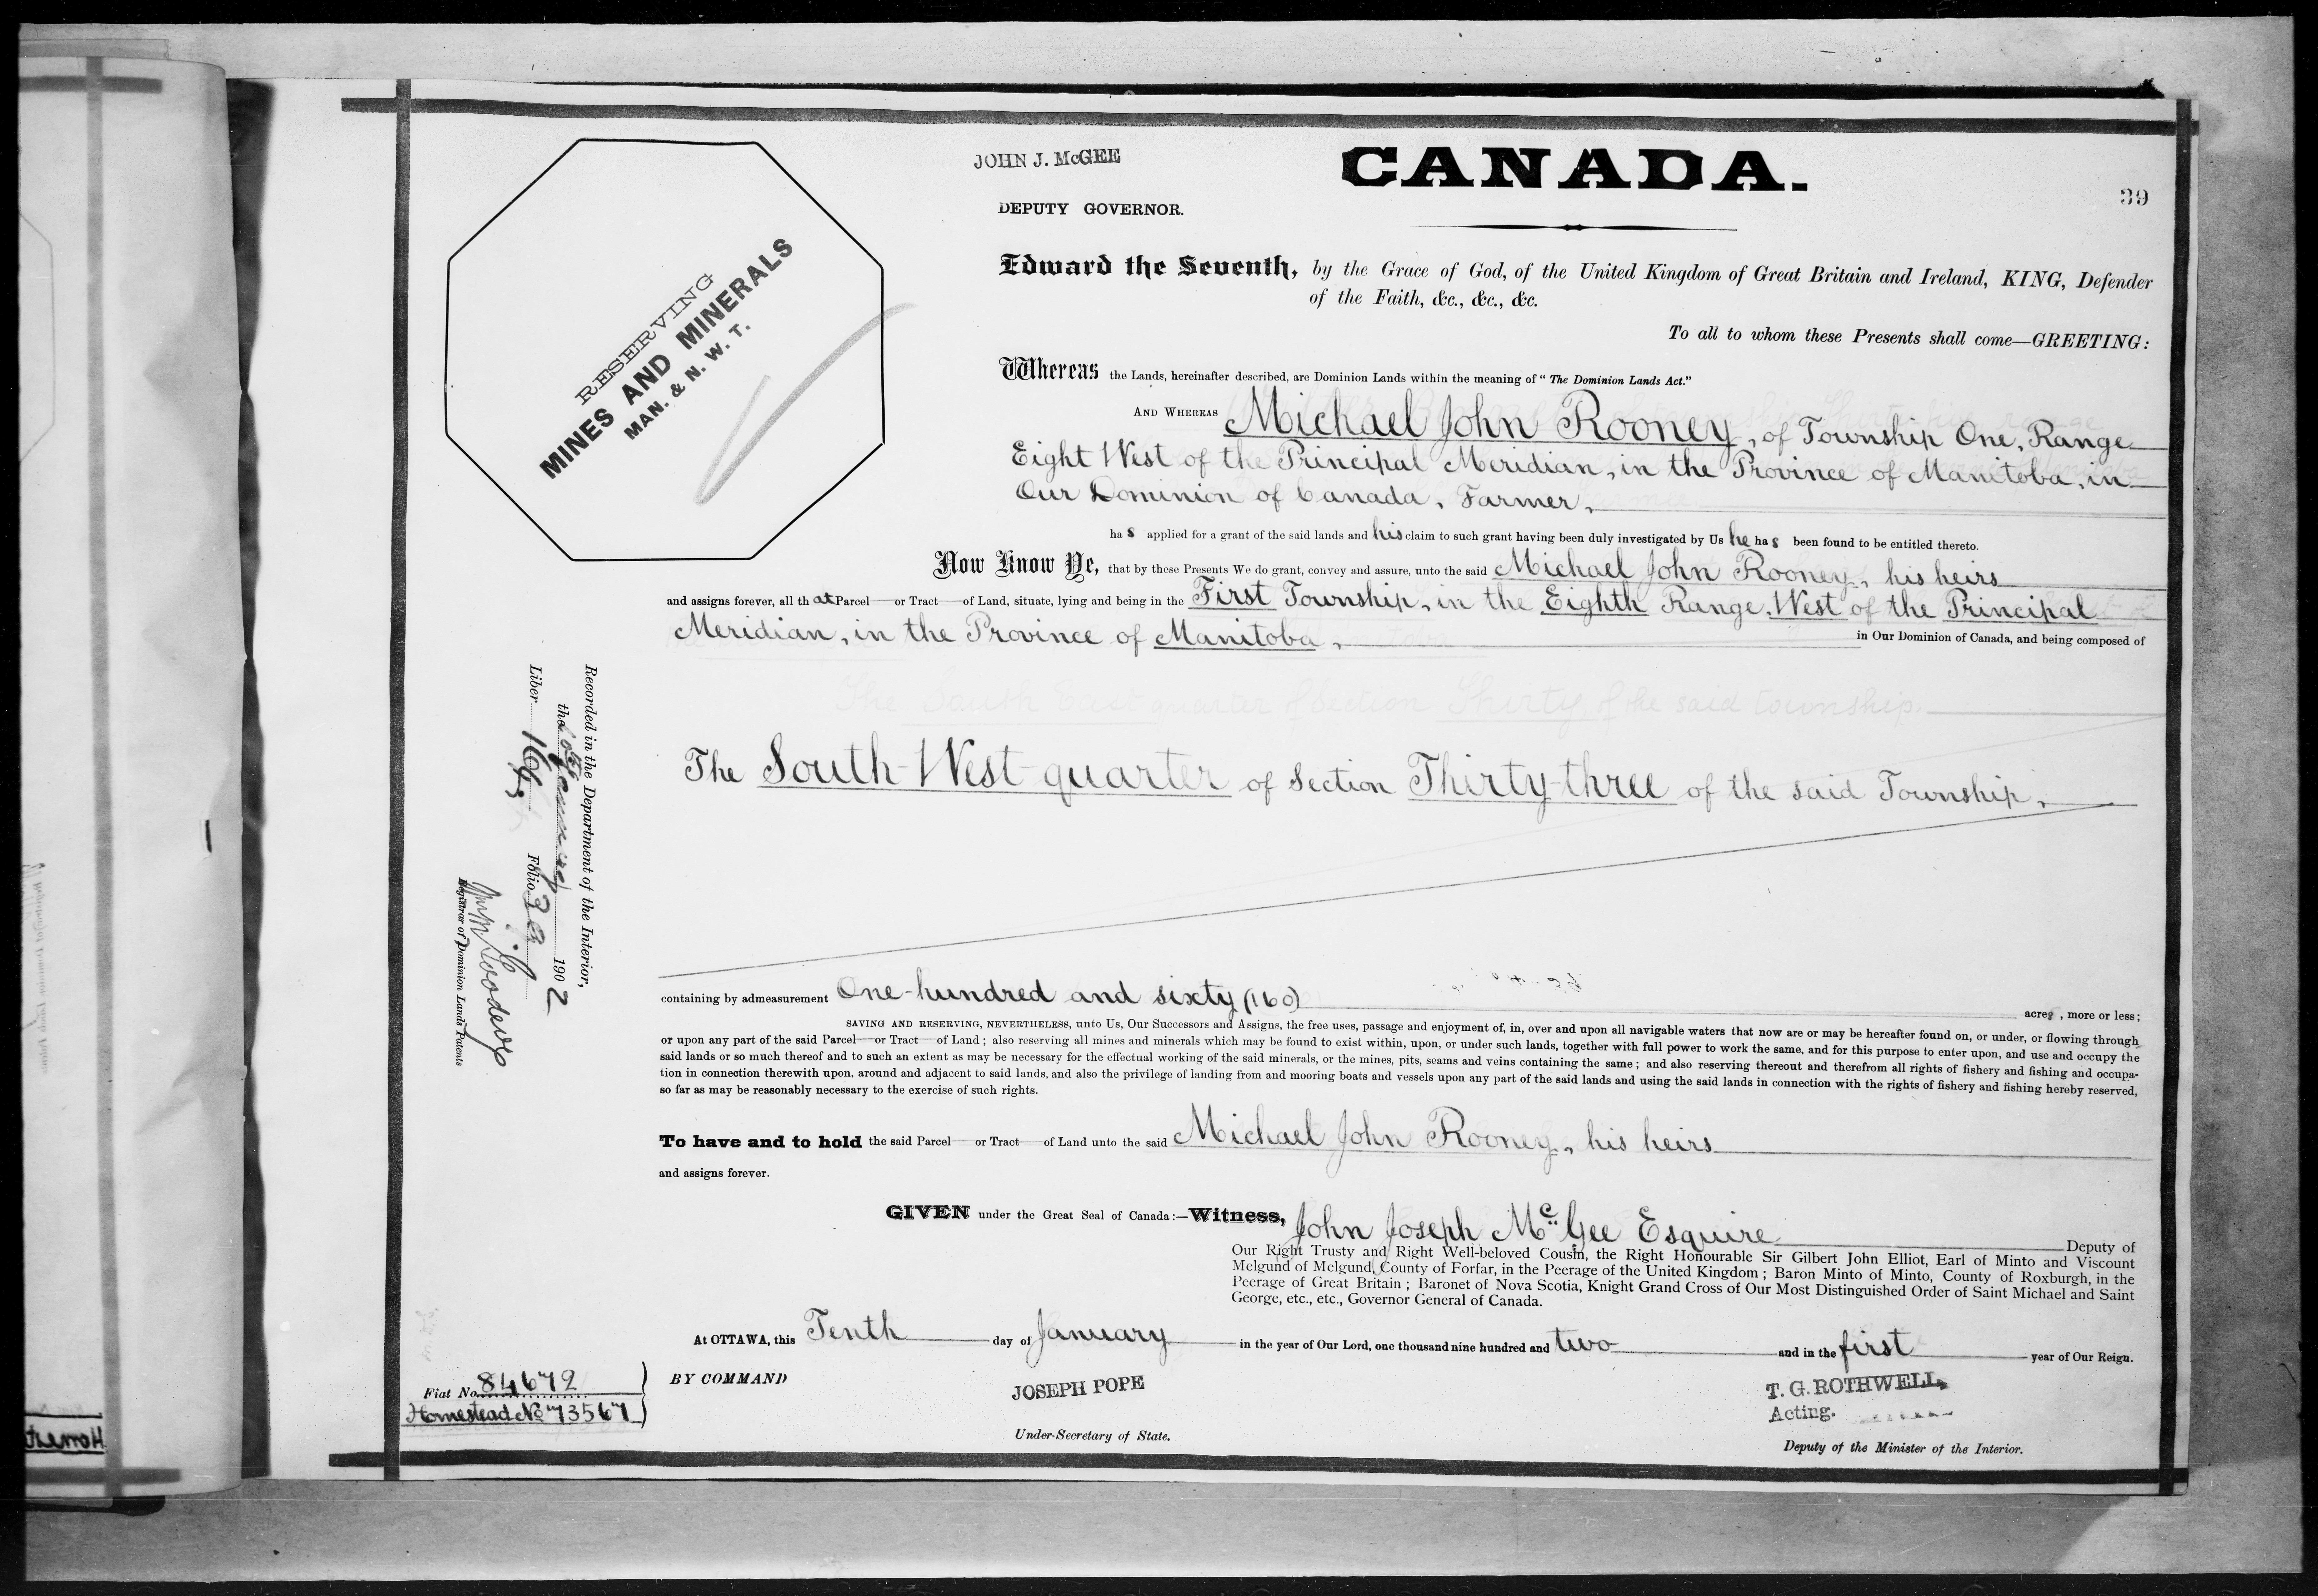 JOHN J. McGEE
CANADA.
DEPUTY GOVERNOR.
39
RESERVING
MINES AND MINERALS
MAN. & N. W. T.
Edward the Seventh, by the Grace of God, of the United Kingdom of Great Britain and Ireland, KING, Defender
of the Faith, &c., &c., &c.
To all to whom these Presents shall come—GREETING:
Whereas the Lands, hereinafter described, are Dominion Lands within the meaning of "The Dominion Lands Act."
AND WHEREAS Michael John Rooney, of Township One, Range
Eight West of the Principal Meridian, in the Province of Manitoba, in
Our Dominion of Canada, Farmer,
ha s applied for a grant of the said lands and his claim to such grant having been duly investigated by Us he ha s been found to be entitled thereto.
Now Know Ye, that by these Presents We do grant, convey and assure, unto the said Michael John Rooney, his heirs
and assigns forever, all th at Parcel—or Tract—of Land, situate, lying and being in the First Township, in the Eighth Range, West of the Principal
Meridian, in the Province of Manitoba, in Our Dominion of Canada, and being composed of
The South West quarter of Section Thirty-three of the said Township,
containing by admeasurement One hundred and sixty (160) acres, more or less;
SAVING AND RESERVING, NEVERTHELESS, unto Us, Our Successors and Assigns, the free uses, passage and enjoyment of, in, over and upon all navigable waters that now are or may be hereafter found on, or under, or flowing through
or upon any part of the said Parcel—or Tract—of Land; also reserving all mines and minerals which may be found to exist within, upon, or under such lands, together with full power to work the same, and for this purpose to enter upon, and use and occupy the
said lands or so much thereof and to such an extent as may be necessary for the effectual working of the said minerals, or the mines, pits, seams and veins containing the same; and also reserving thereout and therefrom all rights of fishery and fishing and occupa-
tion in connection therewith upon, around and adjacent to said lands, and also the privilege of landing from and mooring boats and vessels upon any part of the said lands and using the said lands in connection with the rights of fishery and fishing hereby reserved,
so far as may be reasonably necessary to the exercise of such rights.
To have and to hold the said Parcel—or Tract—of Land unto the said Michael John Rooney, his heirs
and assigns forever.
GIVEN under the Great Seal of Canada:—Witness, John Joseph McGee Esquire Deputy of
Our Right Trusty and Right Well-beloved Cousin, the Right Honourable Sir Gilbert John Elliot, Earl of Minto and Viscount
Melgund of Melgund, County of Forfar, in the Peerage of the United Kingdom; Baron Minto of Minto, County of Roxburgh, in the
Peerage of Great Britain; Baronet of Nova Scotia, Knight Grand Cross of Our Most Distinguished Order of Saint Michael and Saint
George, etc., etc., Governor General of Canada.
At OTTAWA, this Tenth day of January in the year of Our Lord, one thousand nine hundred and two and in the first year of Our Reign.
BY COMMAND
JOSEPH POPE
Under-Secretary of State.
T. G. ROTHWELL,
Acting.
Deputy of the Minister of the Interior.
Fiat No. 84672
Homestead No 73567
Recorded in the Department of the Interior,
the January 1902
Liber 164 Folio 39
Registrar of Dominion Lands Patents